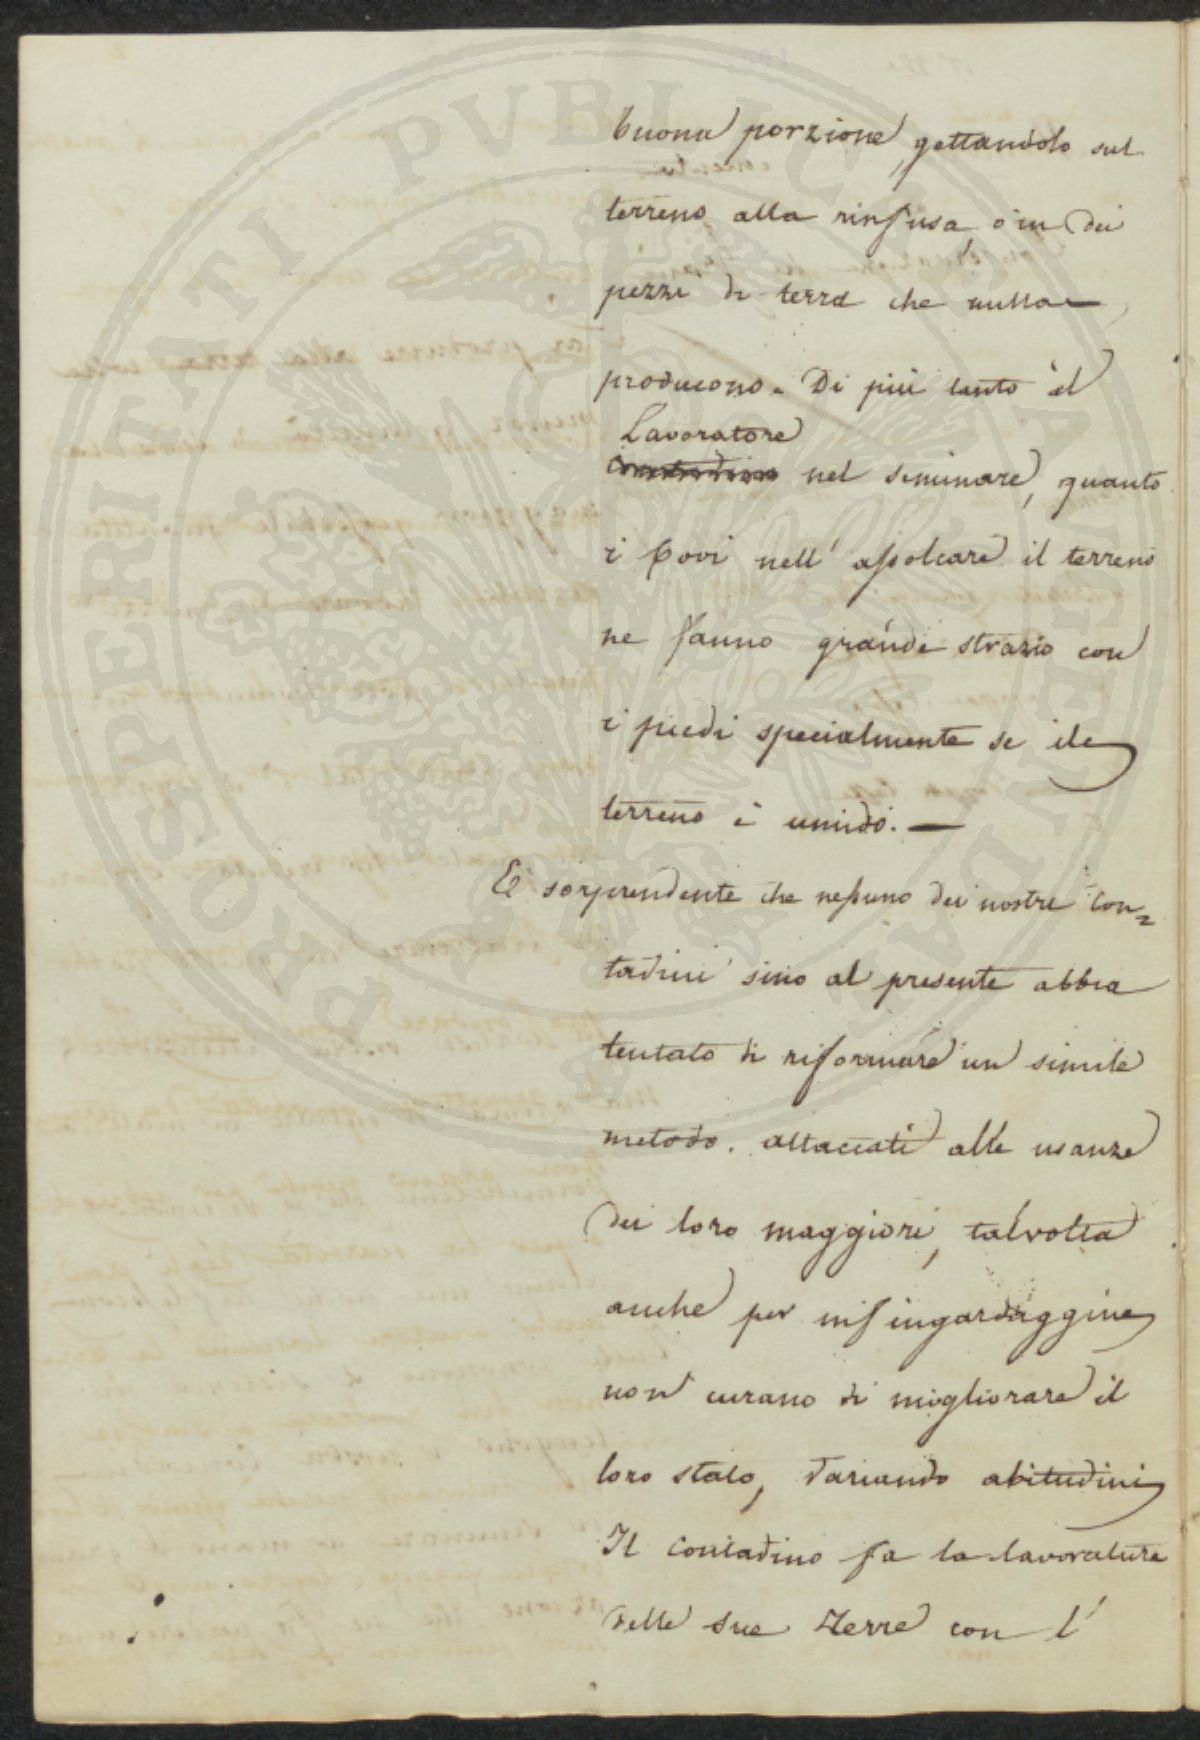 buona porzione, gettandolo sul
terreno alla rinfusa, o in dei
pezzi di terra che nulla
producono. Di più tanto il
Lavoratore
contadino nel seminare, quanto
i bovi nell' assolcare il terreno
ne fanno grande strazio con
i piedi specialmente se il
terreno è umido. —
È sorprendente che nessuno dei nostri con=
tadini sino al presente abbia
tentato di riformare un simile
metodo. attaccati alle usanze
dei loro maggiori, talvolta
anche per infingardaggine
non curano di migliorare il
loro stato, variando abitudini
Il Contadino fa la lavoratura
delle sue Terre con l'
PROSPERITATI PVBLICAE AVGENDAE